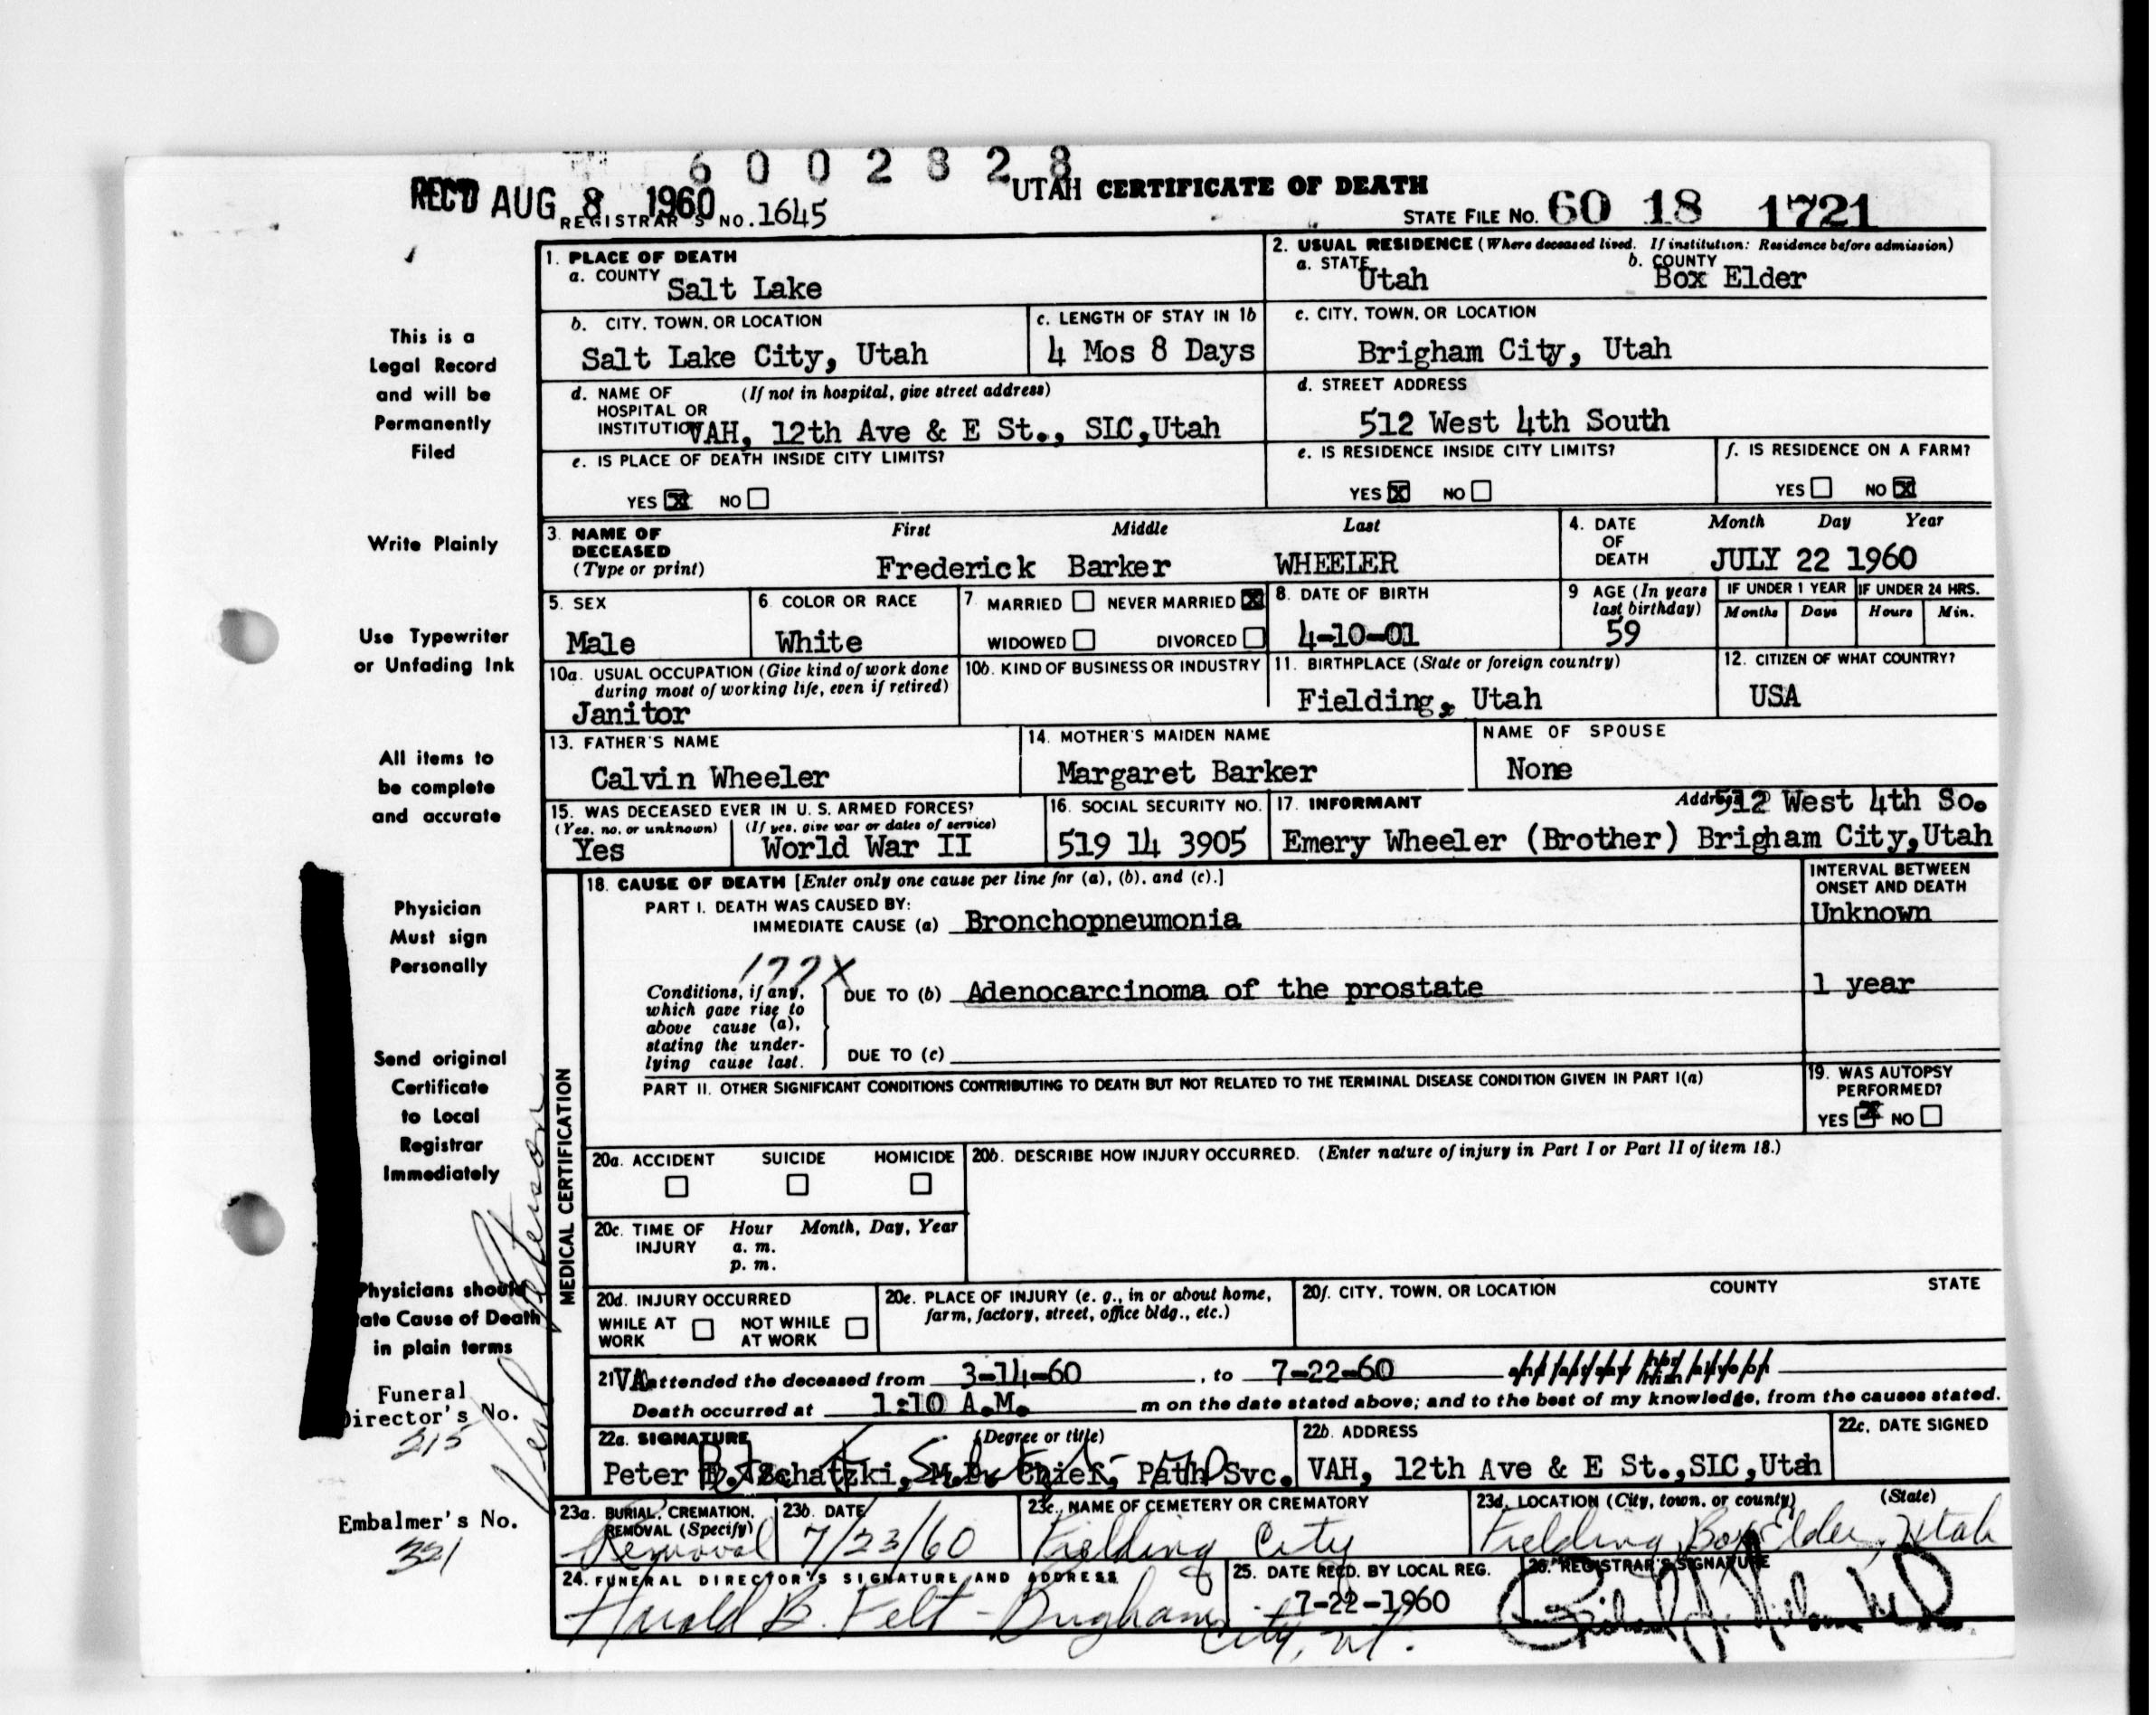 6 0 0 2 8 2 8
REC'D AUG 8 1960
REGISTRAR'S NO. 1645
UTAH CERTIFICATE OF DEATH
STATE FILE NO. 60 18 1721
1. PLACE OF DEATH
a. COUNTY Salt Lake
2. USUAL RESIDENCE (Where deceased lived. If institution: Residence before admission)
a. STATE Utah b. COUNTY Box Elder
b. CITY, TOWN, OR LOCATION
Salt Lake City, Utah
c. LENGTH OF STAY IN 1b
4 Mos 8 Days
c. CITY, TOWN, OR LOCATION
Brigham City, Utah
d. NAME OF (If not in hospital, give street address)
HOSPITAL OR
INSTITUTION VAH, 12th Ave & E St., SLC,Utah
d. STREET ADDRESS
512 West 4th South
e. IS PLACE OF DEATH INSIDE CITY LIMITS?
YES X NO
e. IS RESIDENCE INSIDE CITY LIMITS?
YES X NO
f. IS RESIDENCE ON A FARM?
YES NO X
3. NAME OF DECEASED (Type or print)
First Middle Last
Frederick Barker WHEELER
4. DATE OF DEATH
Month Day Year
JULY 22 1960
5. SEX
Male
6. COLOR OR RACE
White
7. MARRIED NEVER MARRIED X
WIDOWED DIVORCED
8. DATE OF BIRTH
4-10-01
9 AGE (In years last birthday)
59
IF UNDER 1 YEAR IF UNDER 24 HRS.
Months Days Hours Min.
10a. USUAL OCCUPATION (Give kind of work done
during most of working life, even if retired)
Janitor
10b. KIND OF BUSINESS OR INDUSTRY
11. BIRTHPLACE (State or foreign country)
Fielding, Utah
12. CITIZEN OF WHAT COUNTRY?
USA
13. FATHER'S NAME
Calvin Wheeler
14. MOTHER'S MAIDEN NAME
Margaret Barker
NAME OF SPOUSE
None
15. WAS DECEASED EVER IN U. S. ARMED FORCES?
(Yes, no, or unknown) (If yes, give war or dates of service)
Yes World War II
16. SOCIAL SECURITY NO.
519 14 3905
17. INFORMANT Address 512 West 4th So.
Emery Wheeler (Brother) Brigham City,Utah
MEDICAL CERTIFICATION
18. CAUSE OF DEATH [Enter only one cause per line for (a), (b), and (c).]
PART I. DEATH WAS CAUSED BY:
IMMEDIATE CAUSE (a) Bronchopneumonia
INTERVAL BETWEEN
ONSET AND DEATH
Unknown
177X
Conditions, if any,
which gave rise to
above cause (a),
stating the under-
lying cause last.
DUE TO (b) Adenocarcinoma of the prostate
1 year
DUE TO (c)
PART II. OTHER SIGNIFICANT CONDITIONS CONTRIBUTING TO DEATH BUT NOT RELATED TO THE TERMINAL DISEASE CONDITION GIVEN IN PART I(a)
19. WAS AUTOPSY
PERFORMED?
YES X NO
20a. ACCIDENT SUICIDE HOMICIDE
20b. DESCRIBE HOW INJURY OCCURRED. (Enter nature of injury in Part I or Part II of item 18.)
20c. TIME OF INJURY
Hour Month, Day, Year
a. m.
p. m.
20d. INJURY OCCURRED
WHILE AT WORK NOT WHILE AT WORK
20e. PLACE OF INJURY (e. g., in or about home,
farm, factory, street, office bldg., etc.)
20f. CITY, TOWN, OR LOCATION COUNTY STATE
21 VA attended the deceased from 3-14-60, to 7-22-60
Death occurred at 1:10 A.M. m on the date stated above; and to the best of my knowledge, from the causes stated.
22a. SIGNATURE (Degree or title)
Peter Schatzki, M.D. Chief, Path Svc.
22b. ADDRESS
VAH, 12th Ave & E St.,SLC,Utah
22c. DATE SIGNED
23a. BURIAL, CREMATION,
REMOVAL (Specify)
Removal
23b. DATE
7/23/60
23c. NAME OF CEMETERY OR CREMATORY
Fielding City
23d. LOCATION (City, town, or county) (State)
Fielding, Box Elder, Utah
24. FUNERAL DIRECTOR'S SIGNATURE AND ADDRESS
Harold B. Felt - Brigham
City, Ut.
25. DATE RECD. BY LOCAL REG.
7-22-1960
26. REGISTRAR'S SIGNATURE
This is a
Legal Record
and will be
Permanently
Filed
Write Plainly
Use Typewriter
or Unfading Ink
All items to
be complete
and accurate
Physician
Must sign
Personally
Send original
Certificate
to Local
Registrar
Immediately
Physicians should
ate Cause of Death
in plain terms
Funeral
Director's No.
215
Embalmer's No.
321
Peterson